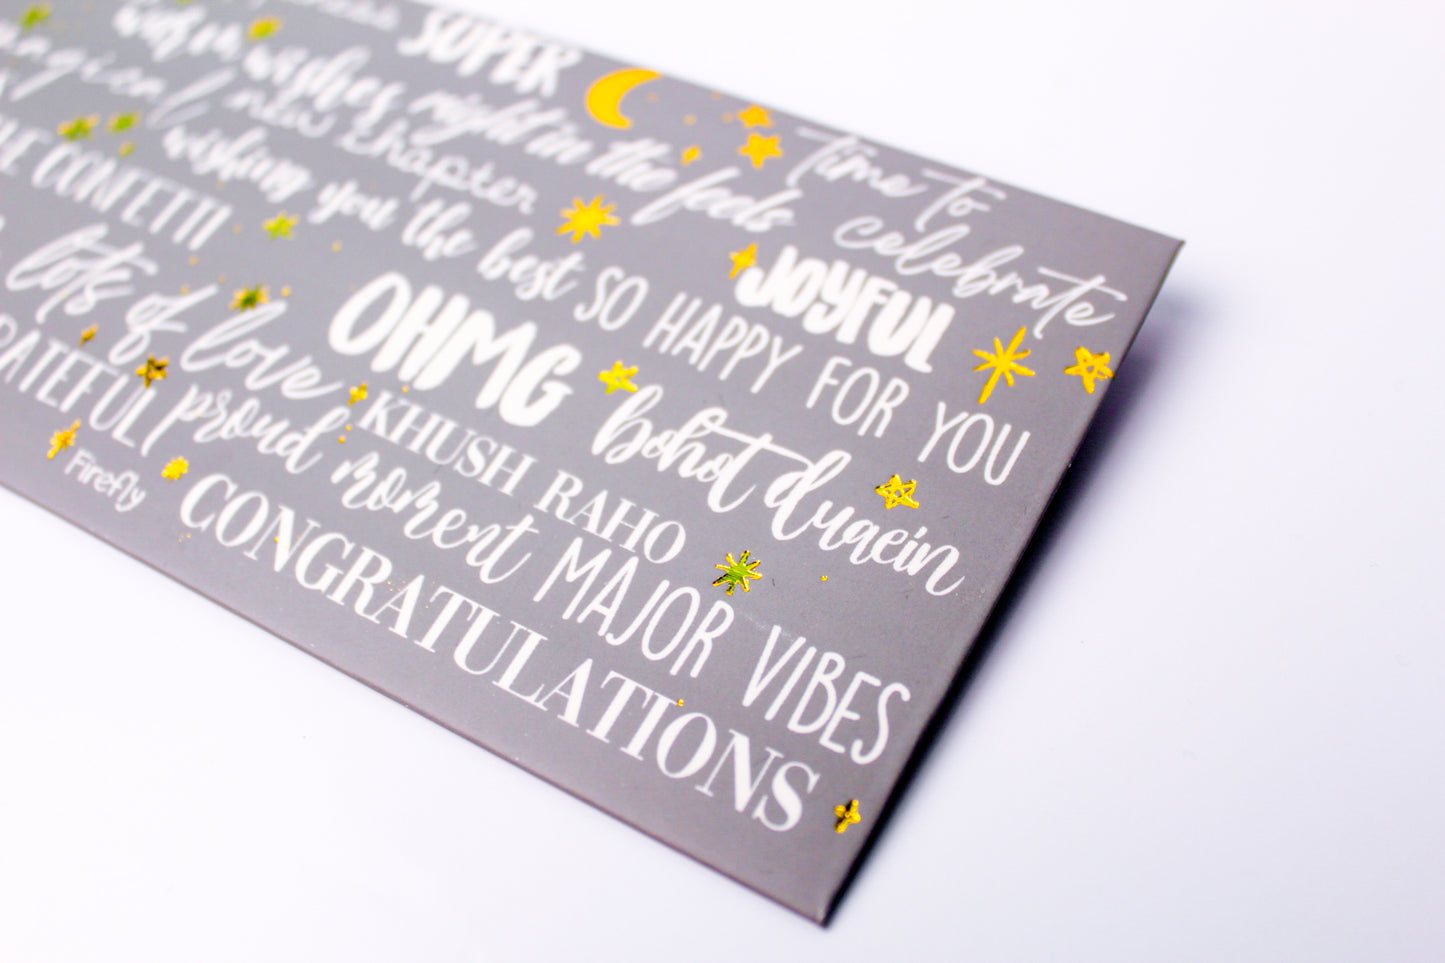 SUPER
wish on wishes right in the feels
time to
celebrate
magical new chapter
JOYFUL
wishing you the best SO HAPPY FOR YOU
CONFETTI
OHMG bohot duaein
lots of love KHUSH RAHO
proud moment MAJOR VIBES
Firefly CONGRATULATIONS